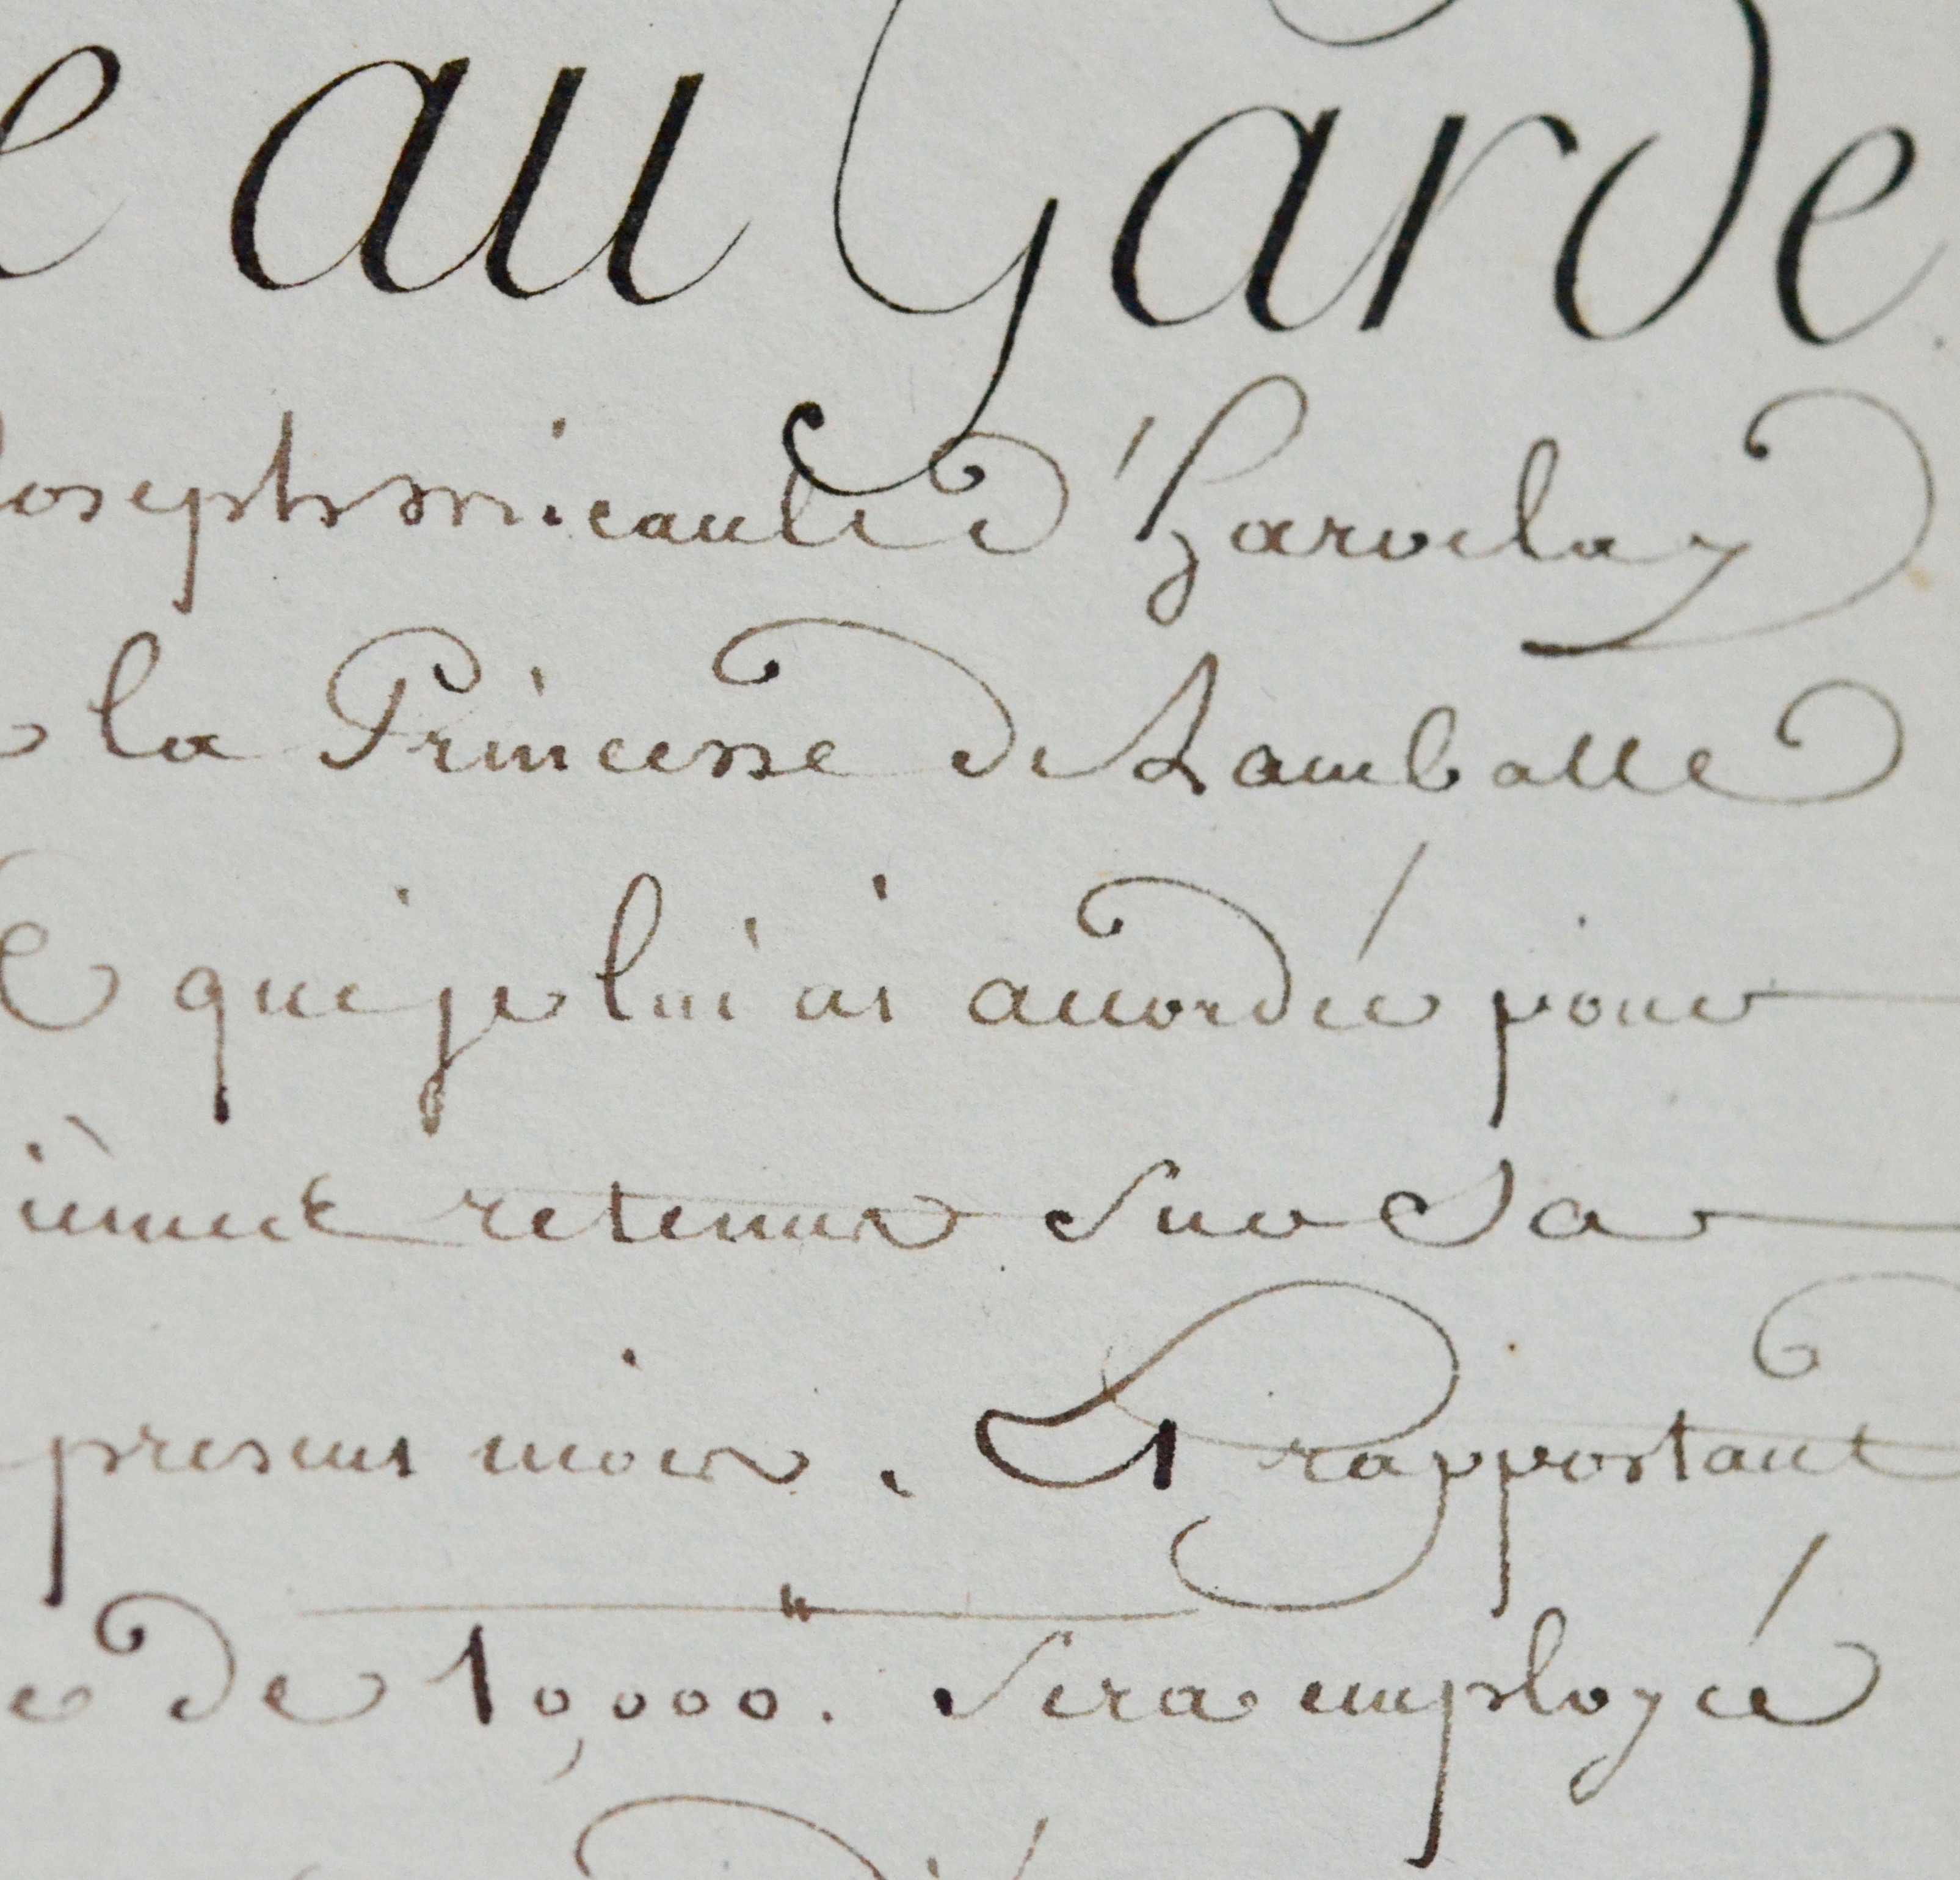 e au Garde
Joseph micault d'harvelay
la Princesse de Lamballe
que je lui ai accordée pour
retenue sur sa
present mois. Et rapportant
de 10,000ᵗᵗ. Sera employée